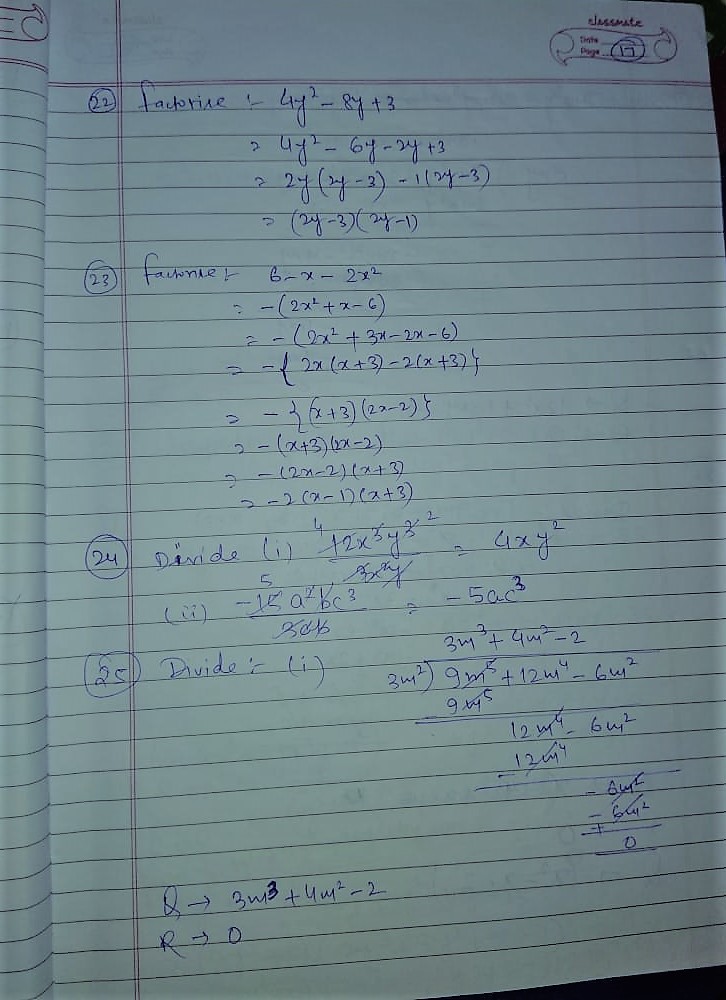 classmate
Date
Page 17
22 Factorise :- 4y² - 8y + 3
= 4y² - 6y - 2y + 3
= 2y (2y - 3) - 1 (2y - 3)
= (2y - 3) (2y - 1)
23 Factorise :- 6 - x - 2x²
= -(2x² + x - 6)
= -(2x² + 3x - 2x - 6)
= -{ 2x (x + 3) - 2 (x + 3) }
= -{ (x + 3) (2x - 2) }
= -(x + 3) (2x - 2)
= -(2x - 2) (x + 3)
= -2 (x - 1) (x + 3)
24 Divide (i) 4 12x³y³ 2 / 3x²y = 4xy²
(ii) 5 -15a²bc³ / 3ab = -5ac³
25 Divide :- (i) 3m³ + 4m² - 2
3m² ) 9m⁵ + 12m⁴ - 6m²
9m⁵
12m⁴ - 6m²
- 12m⁴
- 6m²
- 6m²
+
0
Q → 3m³ + 4m² - 2
R → 0